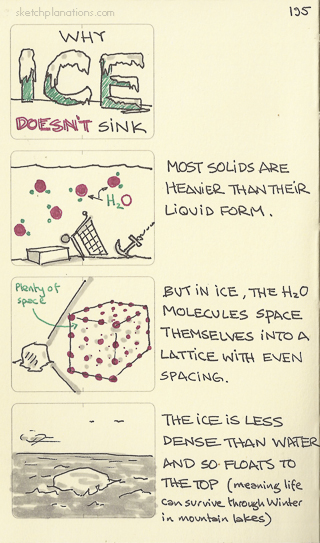 sketchplanations.com
195
WHY
ICE
DOESN'T SINK
H2O
MOST SOLIDS ARE
HEAVIER THAN THEIR
LIQUID FORM.
Plenty of
space
BUT IN ICE, THE H2O
MOLECULES SPACE
THEMSELVES INTO A
LATTICE WITH EVEN
SPACING.
THE ICE IS LESS
DENSE THAN WATER
AND SO FLOATS TO
THE TOP (meaning life
can survive through Winter
in mountain lakes)